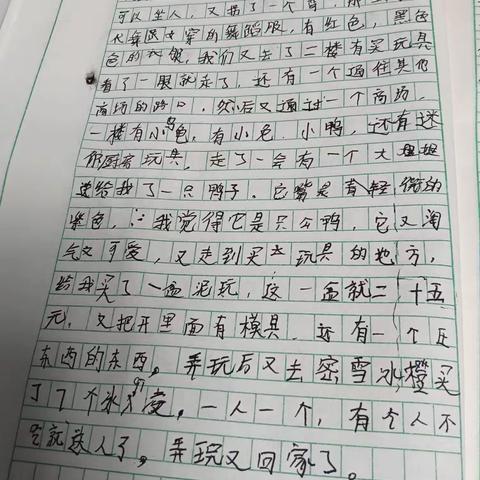 可以坐人，又拐了一个弯，那
代舞跃女穿的舞蹈服，有红色，黑色
色的和银，我们又去了二楼有买玩具
看了一眼就走了，还有一个通往其他
商场的路口，然后又通过一个商场，
一楼有小鱼，有小兔、小鸭，还有迷
你厨房玩具，走了一会有一个大姐姐
送给我了一只鸭子，它嘴是青轻微的
紫色，我觉得它是只公鸭，它又淘
气又可爱，又走到买玩具的地方，
给我买了一盒泥玩，这一盒就二十五
元，又把开里面有模具，还有一个压
东西的东西，弄玩后又去密雪冰橙买
了7个冰，一人一个，有个人不
吃就送人了，弄玩又回家了。